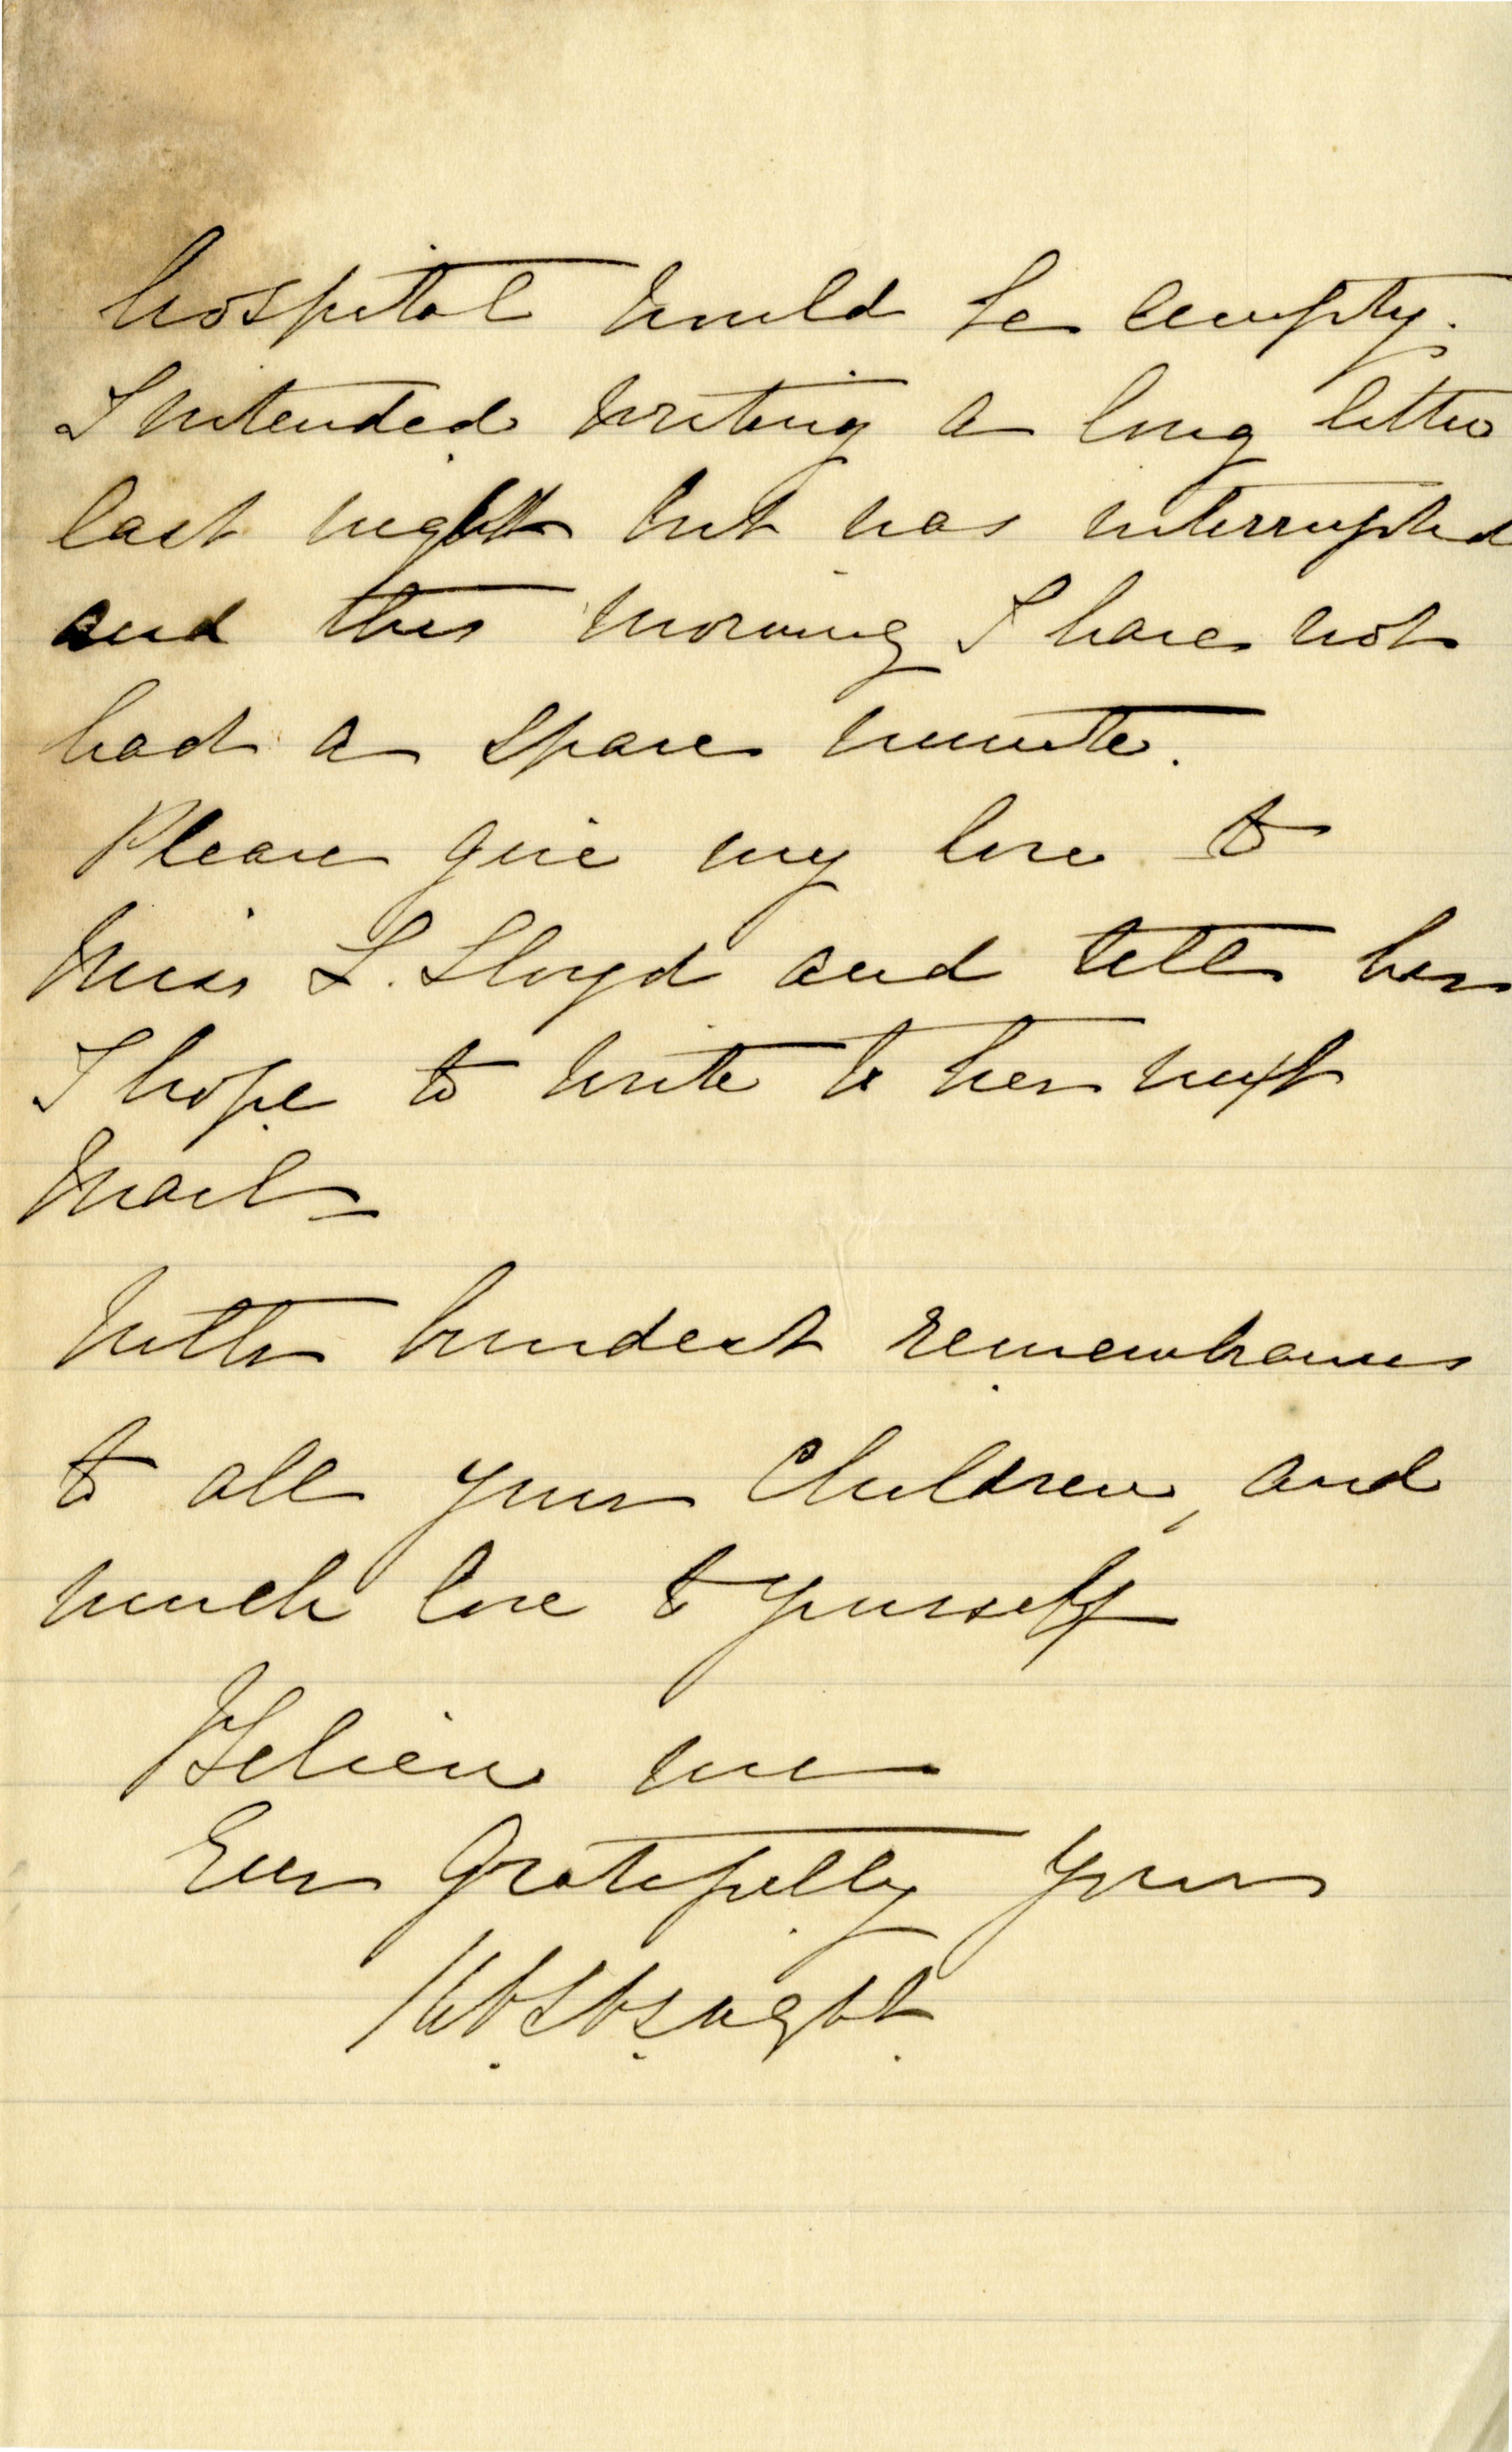 hospital would be empty.
I intended writing a long letter
last night but was interrupted
and this morning I have not
had a spare minute.
Please give my love to
Miss L. Lloyd and tell her
I hope to write to her next
Mail –
With kindest remembrances
to all your Children, and
much love to yourself
Believe me
Ever Gratefully Yours